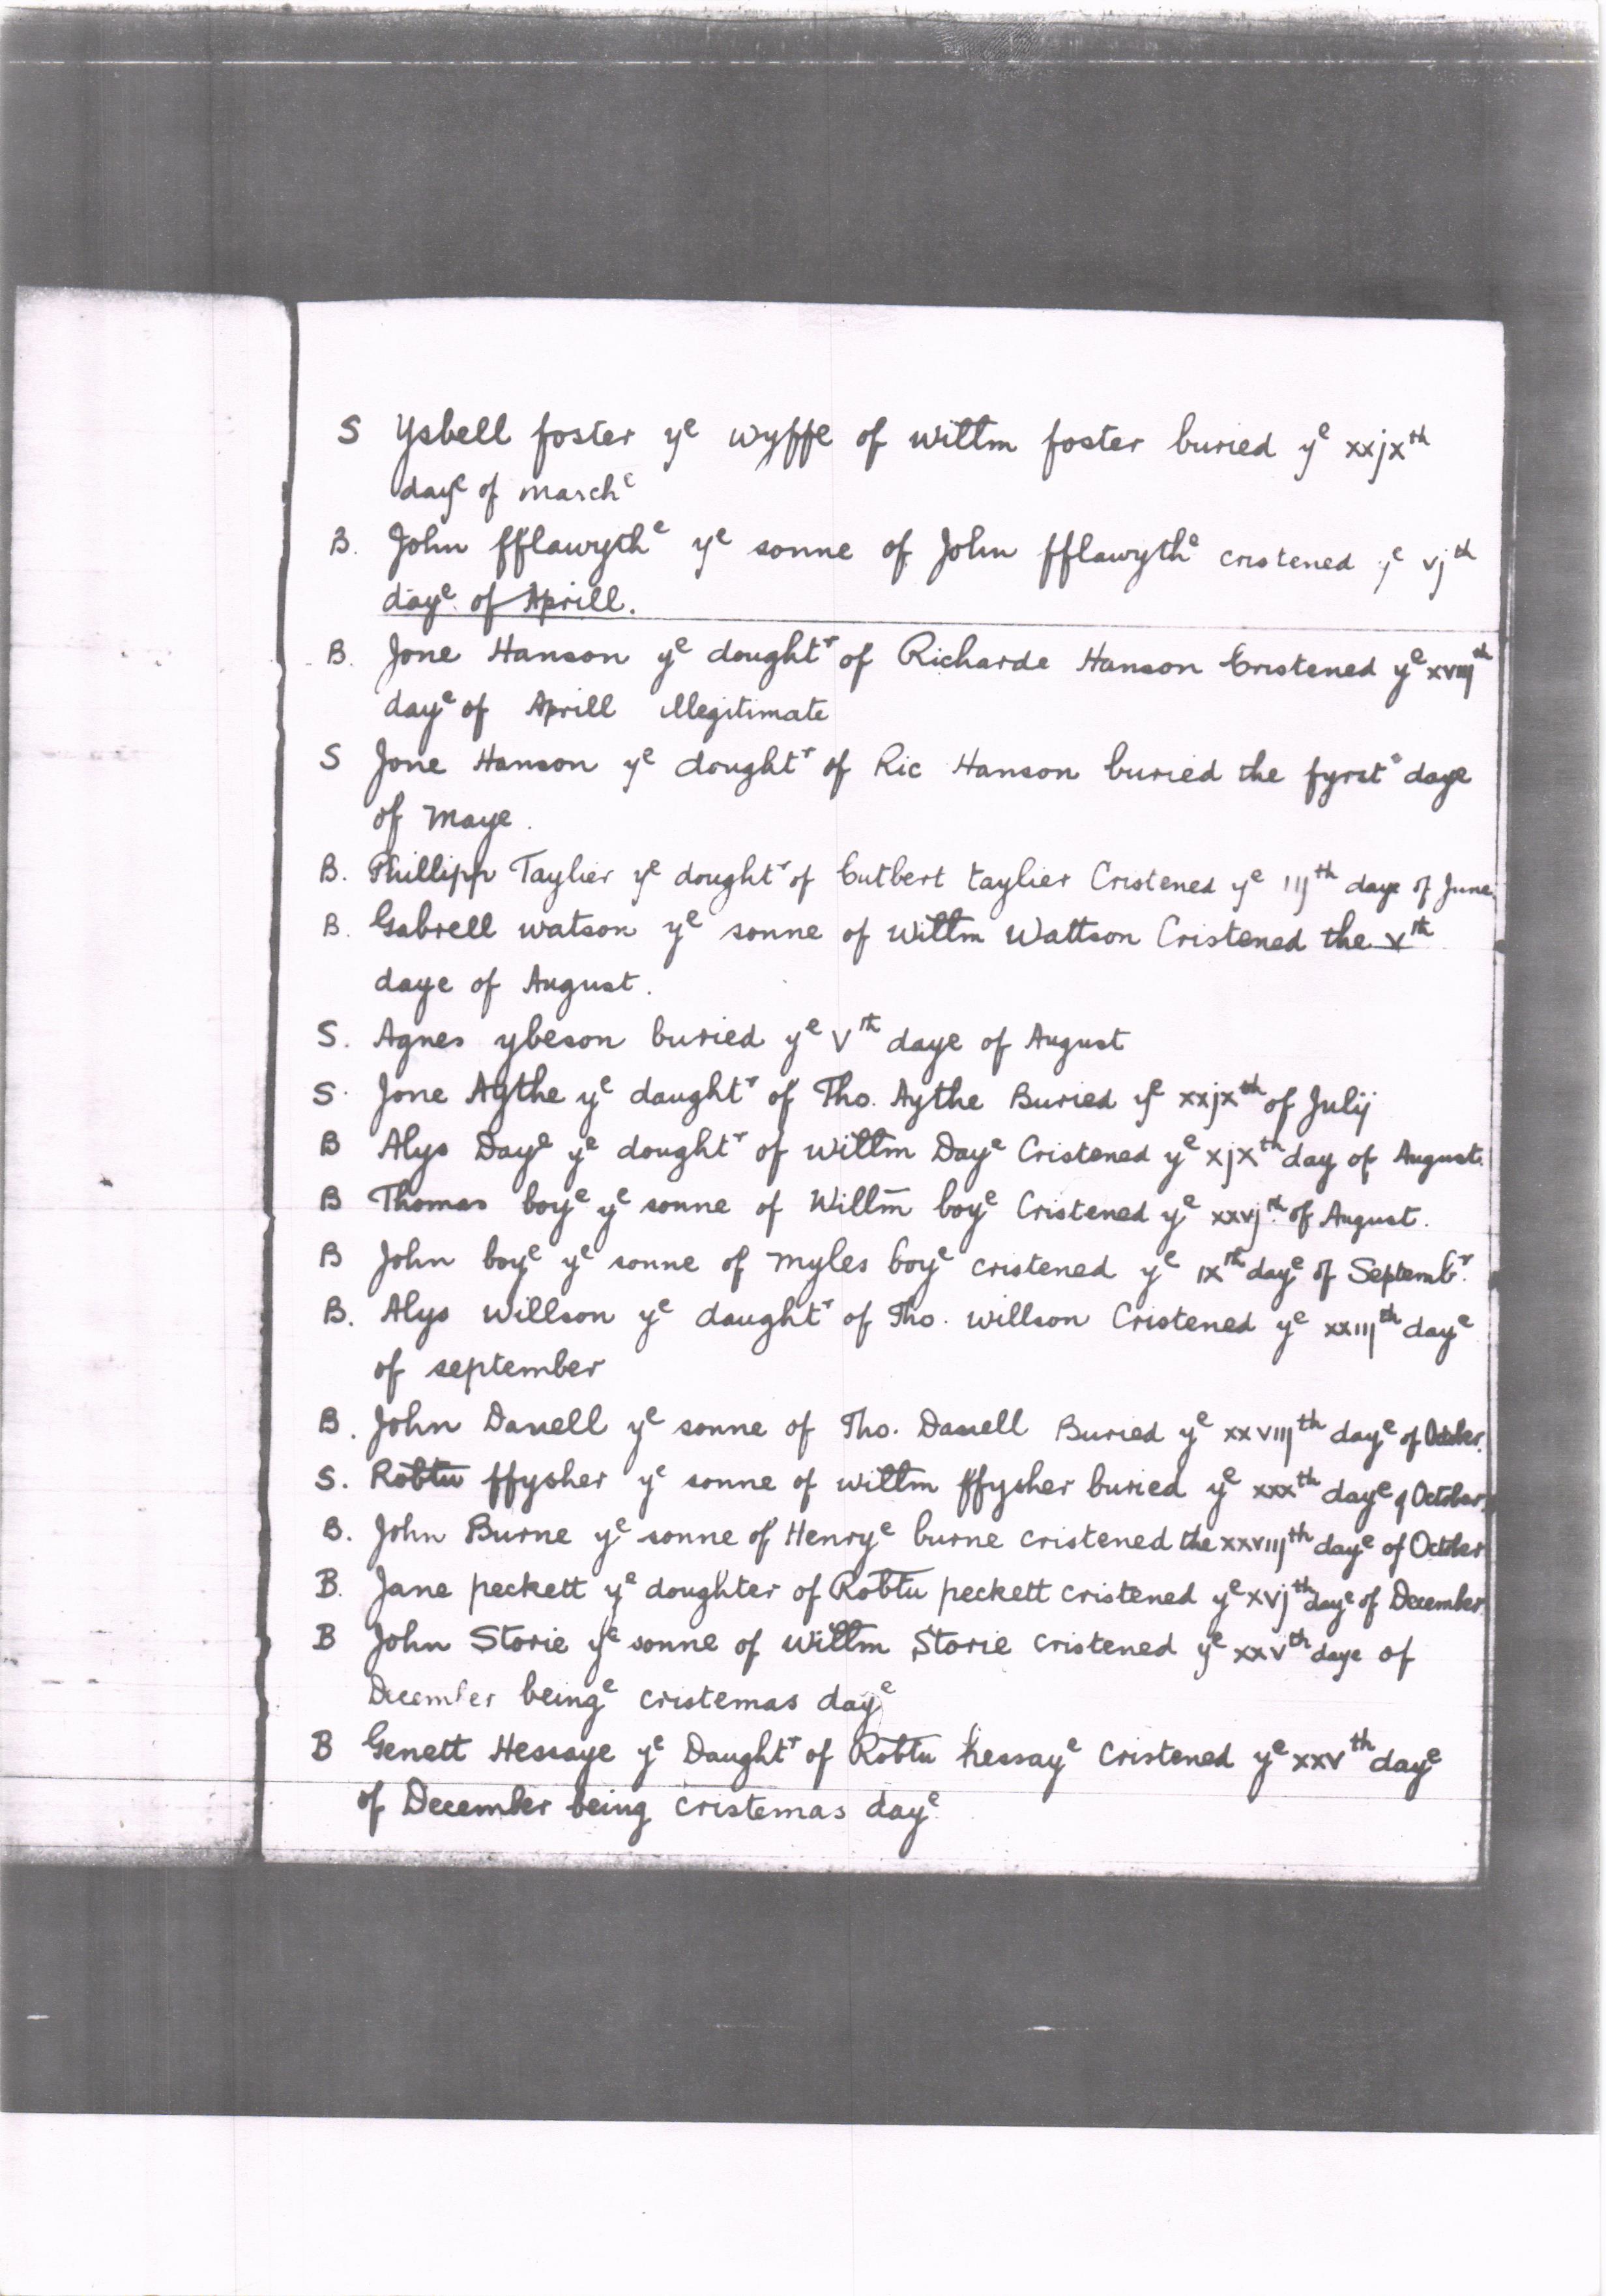 S Ysbell foster yᵉ wyffe of willm foster buried yᵉ xxjxᵗʰ
dayᵉ of marchᵉ
B. John fflawythᵉ yᵉ sonne of John fflawythᵉ cristened yᵉ vjᵗʰ
dayᵉ of Aprill.
B. Jone Hanson yᵉ doughtʳ of Richarde Hanson Cristened yᵉ xviijᵗʰ
dayᵉ of Aprill illegitimate
S Jone Hanson yᵉ doughtʳ of Ric Hanson buried the fyrstᵉ daye
of Maye.
B. Phillipp Taylier yᵉ doughtʳ of Cutbert taylier Cristened yᵉ iijᵗʰ daye of June.
B. Gabrell watson yᵉ sonne of willm Wattson Cristened the vᵗʰ
daye of August.
S. Agnes ybeson buried yᵉ vᵗʰ daye of August
S. Jone Aythe yᵉ daughtʳ of Tho. Aythe Buried yᵉ xxjxᵗʰ of Julij
B Alys Dayᵉ yᵉ doughtʳ of willm Dayᵉ Cristened yᵉ xjxᵗʰ day of August.
B Thomas boyᵉ yᵉ sonne of Willm boyᵉ Cristened yᵉ xxvjᵗʰ of August.
B John boyᵉ yᵉ sonne of myles boyᵉ cristened yᵉ ixᵗʰ dayᵉ of Septembʳ.
B. Alys willson yᵉ daughtʳ of Tho. willson Cristened yᵉ xxiijᵗʰ dayᵉ
of september
B. John Daxell yᵉ sonne of Tho. Daxell Buried yᵉ xxviijᵗʰ dayᵉ of October.
S. Robtu ffysher yᵉ sonne of willm ffysher buried yᵉ xxxᵗʰ dayᵉ of October.
B. John Burne yᵉ sonne of Henryᵉ burne cristened the xxviijᵗʰ dayᵉ of October
B. Jane peckett yᵉ doughter of Robtu peckett cristened yᵉ xvjᵗʰ dayᵉ of December
B John Storie yᵉ sonne of willm Storie cristened yᵉ xxvᵗʰ daye of
December beingᵉ cristemas dayᵉ
B Genett Hessaye yᵉ Daughtʳ of Robtu hessayᵉ Cristened yᵉ xxvᵗʰ dayᵉ
of December being cristemas dayᵉ